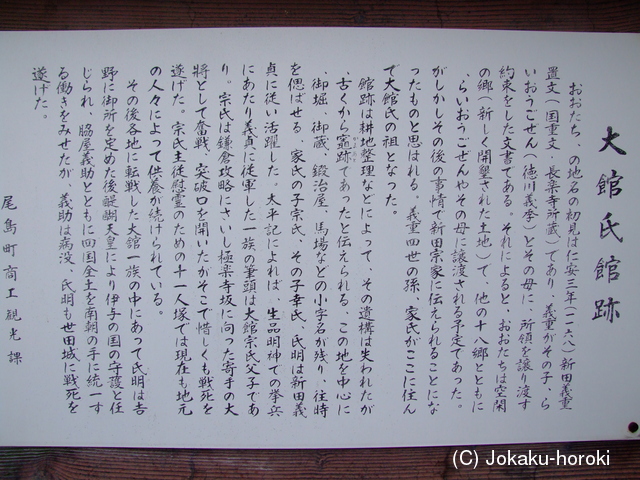 大館氏館跡
おおたち、の地名の初見は仁安三年(一一六八)新田義重
置文(国重文・長楽寺所蔵)であり、義重がその子、ら
いおうごぜん(徳川義季)とその母に、所領を譲り渡す
約束をした文書である。それによると、おおたちは空閑
の郷(新しく開墾された土地)で、他の十八郷とともに
、らいおうごぜんやその母に譲渡される予定であった。
がしかしその後の事情で新田宗家に伝えられることにな
ったものと思はれる。義重四世の孫、家氏がここに住ん
で大館氏の祖となった。
館跡は耕地整理などによって、その遺構は失われたが
、古くから竈跡であったと伝えられる。この地を中心に
、御堀、御蔵、鍛冶屋、馬場などの小字名が残り、往時
を偲ばせる。家氏の子宗氏、その子幸氏、氏明は新田義
貞に従い活躍した。太平記によれば、生品明神での挙兵
にあたり義貞に従軍した一族の筆頭は大館宗氏父子であ
り。宗氏は鎌倉攻略にさいし極楽寺坂に向った寄手の大
将として奮戦、突破口を開いたがそこで惜しくも戦死を
遂げた。宗氏主従慰霊のための十一人塚では現在も地元
の人々によって供養が続けられている。
その後各地に転戦した大館一族の中にあって氏明は吉
野に御所を定めた後醍醐天皇により伊予の国の守護と任
じられ、脇屋義助とともに四国全土を南朝の手に統一す
る働きをみせたが、義助は病没、氏明も世田城に戦死を
遂げた。
尾島町商工観光課
(C) Jokaku-horoki